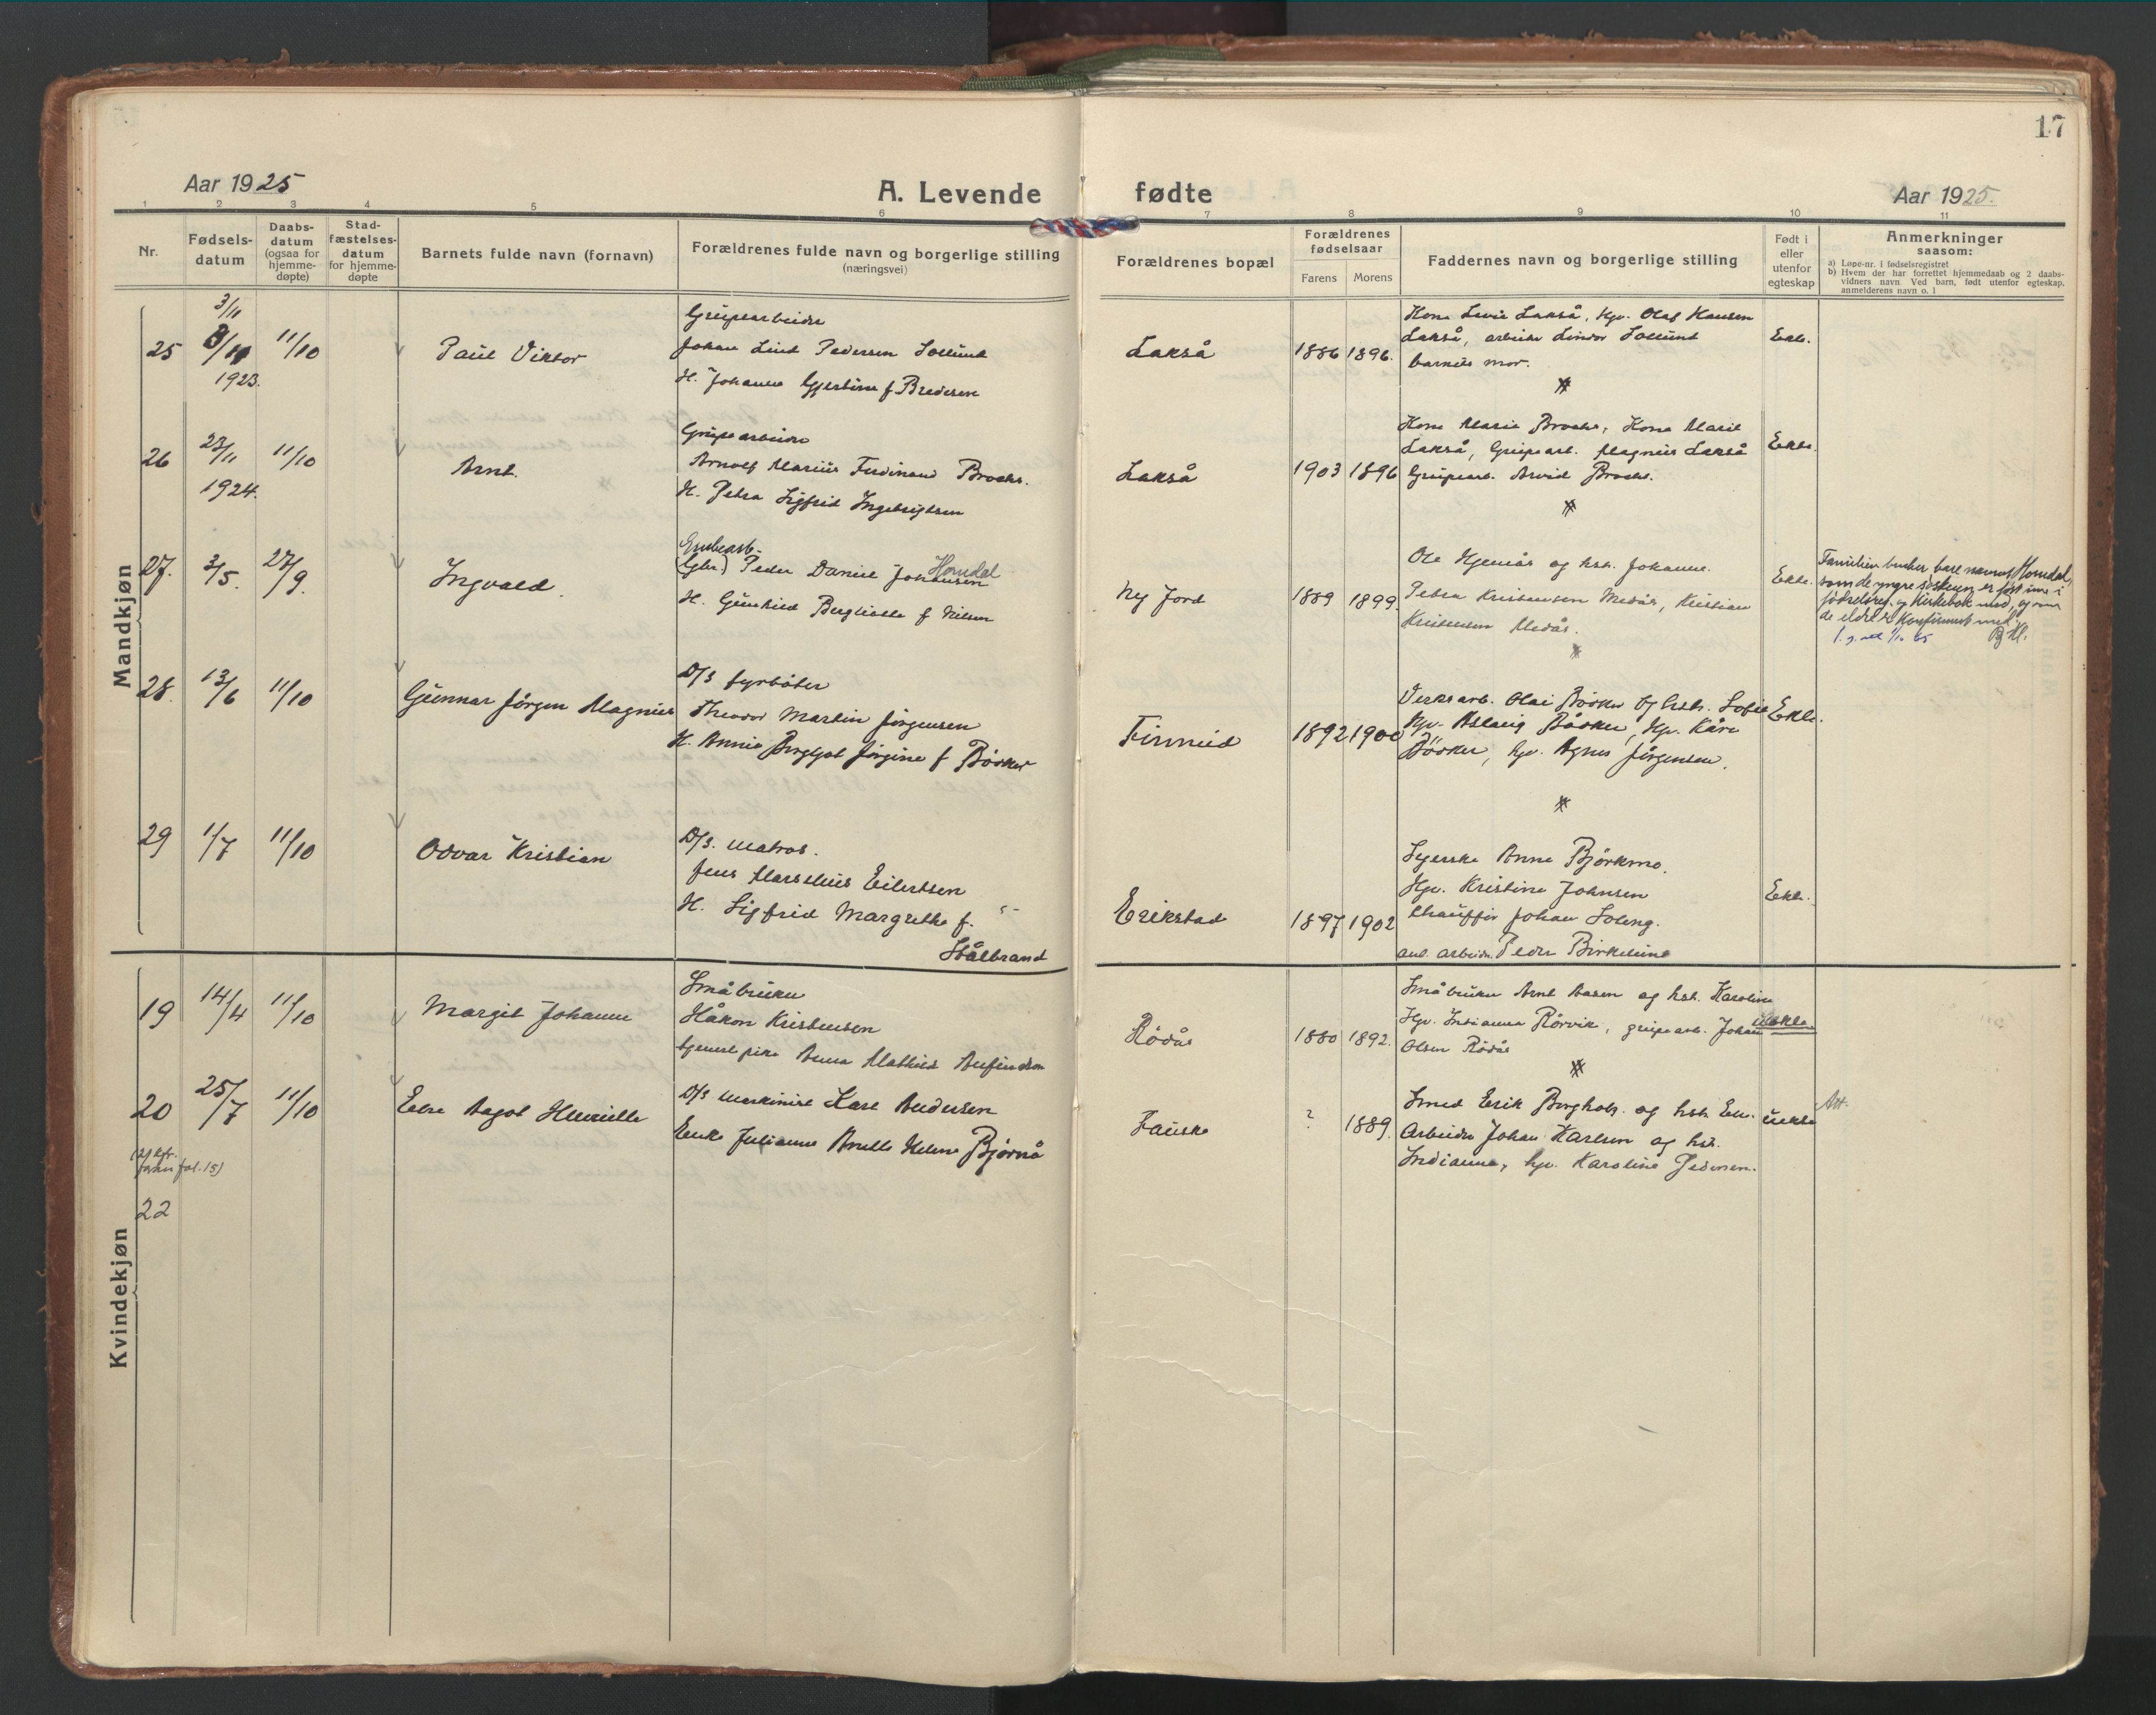 17
Aar 1925
A. Levende fødte
Aar 1925.
1 2 3 4 5 6 7 8 9 10 11
Nr.
Fødsels-
datum
Daabs-
datum
(ogsaa for
hjemme-
døpte)
Stad-
fæstelses-
datum
for hjemme-
døpte
Barnets fulde navn (fornavn)
Forældrenes fulde navn og borgerlige stilling
(næringsvei)
Forældrenes bopæl
Forældrenes
fødselsaar
Farens Morens
Faddernes navn og borgerlige stilling
Født i
eller
utenfor
egteskap
Anmerkninger
saasom:
a) Løpe-nr. i fødselsregistret
b) Hvem der har forrettet hjemmedaab og 2 daabs-
vidners navn Ved barn, født utenfor egteskap,
anmelderens navn o. l
Mandkjøn
3/11
25 11/10
1923.
Paul Viktor
Grubearbeider
Johan Lind Pedersen Sollund
H. Johanna Gjertine f. Bredesen
Lakså
1886 1896.
Kona Lakså, Hgr. Olaf Hansen
Lakså, arbeider Lindor Sollund
barnets mor.
Ekte.
26 23/11 11/10
1924.
Arnt.
Grubearbeider
Arnolf Marius Ferdinand Brochs.
H. Petra Sigfrid Ingebrigtsen
Lakså
1903 1896
Kona Maria Brochs, Kona Marie
Lakså, Grubearb. Magnus Lakså
Grubearb. Arvid Brochs.
Ekte.
27. 3/5. 27/9.
Ingvald.
Grubearb.
(Gbr) Peder Daniel Johansen Homdal
H. Gunhild Bergliotte f. Nilsen
Ny Jord
1889 1899.
Ole og hst. Johanna.
Petra Kristensen Medås, Kristian
Kristensen Medås.
Ekte.
Familien bruker bare navnet Homdal,
som de yngre søsken er ført inn i
fødselsreg. og Kirkebok med, og som
de eldre er Konfirmert med.
28. 13/6 11/10
Gunnar Jörgen Magnus
D/S fyrböter
Theodor Martin Jörgensen
H. Annie Bergljot Jörgine f. Böoker
Finneid
1892 1900
Verksarb. Olai Böoker og hst. Sofie
Hgr. Aslaug Böoker, Hgr. Kåre
Böoker, hgr. Agnes Jörgensen.
Ekte.
29 1/7 11/10
Odvar Kristian
D/S. matros.
Jens Marselius Eilertsen
H. Sigfrid Margrethe f.
Stålbrand
Erikstad
1897 1902
Syerske Anna Björkmo.
Hgr. Kristine Johnsen
Chaufför Johan Soleng.
anl. arbeider Peder Birkelund
Ekte.
Kvindekjøn
19 14/4 11/10
Margit Johanne
Småbruker
Håkon Kristensen
tjenestpike Anna Mathilde Anfindsen
Rödås
1880 1892.
Småbruker Arnt Aasen og hst. Karoline
Hgr. Indianna Rörvik, grubearb. Johan
Olsen Rödås
Uekte
20 25/7 11/10
Else Aagot Henriette
D/S maskinist Karl Andersen
Enke Julianna Anette Helene Bjørnå
Fauske
? 1889.
Smed Erik Bergholz. og hst. Eli.
Arbeider Johan Karlsen og hst.
Indianna, hgr. Karoline Pedersen.
uekte
(21) kfr.
foran fol. 15)
22